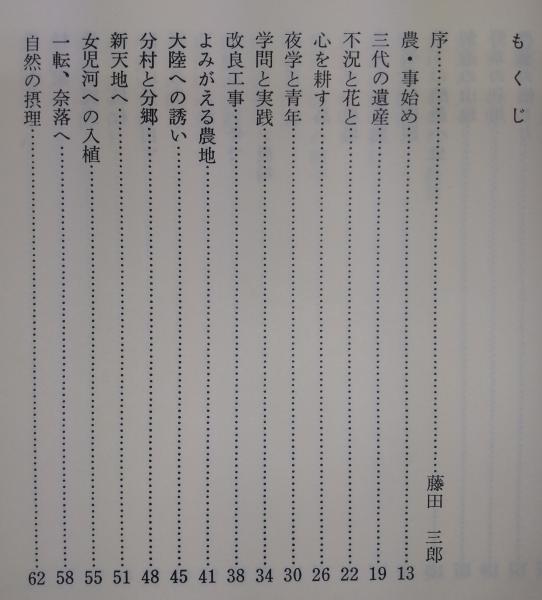 もくじ
序……………………………藤田 三郎
農・事始め……………………………13
三代の遺産……………………………19
不況と花と……………………………22
心を耕す……………………………26
夜学と青年……………………………30
学問と実践……………………………34
改良工事……………………………38
よみがえる農地……………………………41
大陸への誘い……………………………45
分村と分郷……………………………48
新天地へ……………………………51
女児河への入植……………………………55
一転、奈落へ……………………………58
自然の摂理……………………………62